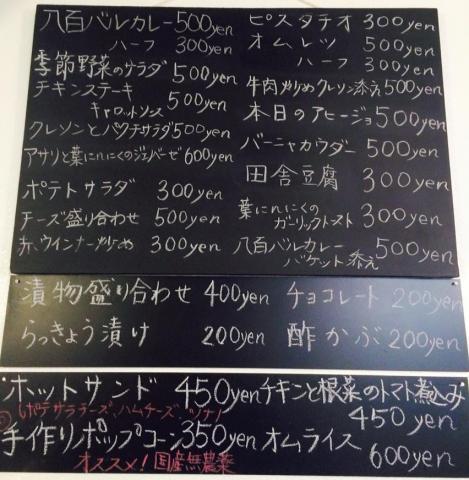 八百バルカレー 500yen
ハーフ 300yen
季節野菜のサラダ 500yen
チキンステーキ
キャロットソース 500yen
クレソンとパクチサラダ 500yen
アサリと葉にんにくのジェノベーゼ 600yen
ポテトサラダ 300yen
チーズ盛り合わせ 500yen
赤ウインナー炒め 300yen
ピスタチオ 300yen
オムレツ 500yen
ハーフ 300yen
牛肉炒めクレソン添え 500yen
本日のアヒージョ 500yen
バーニャカウダー 500yen
田舎豆腐 300yen
葉にんにくの
ガーリックトースト 300yen
八百バルカレー
バケット添え 500yen
漬物盛り合わせ 400yen
チョコレート 200yen
らっきょう漬け 200yen
酢かぶ 200yen
ホットサンド 450yen
ポテサラチーズ、ハムチーズ、ツナ
手作りポップコーン 350yen
オススメ！国産無農薬
チキンと根菜のトマト煮込み
450yen
オムライス 600yen